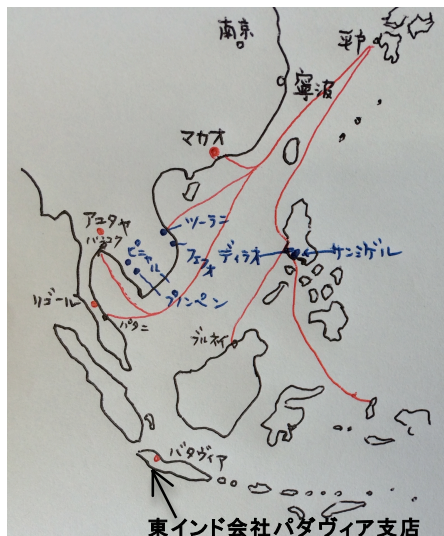 南京
平戸
寧波
マカオ
アユタヤ
バンコク
ツーラン
フェフォ
ディラオ
サンミゲル
ピニャルー
プノンペン
リゴール
パタニ
ブルネイ
バタヴィア
東インド会社パダヴィア支店